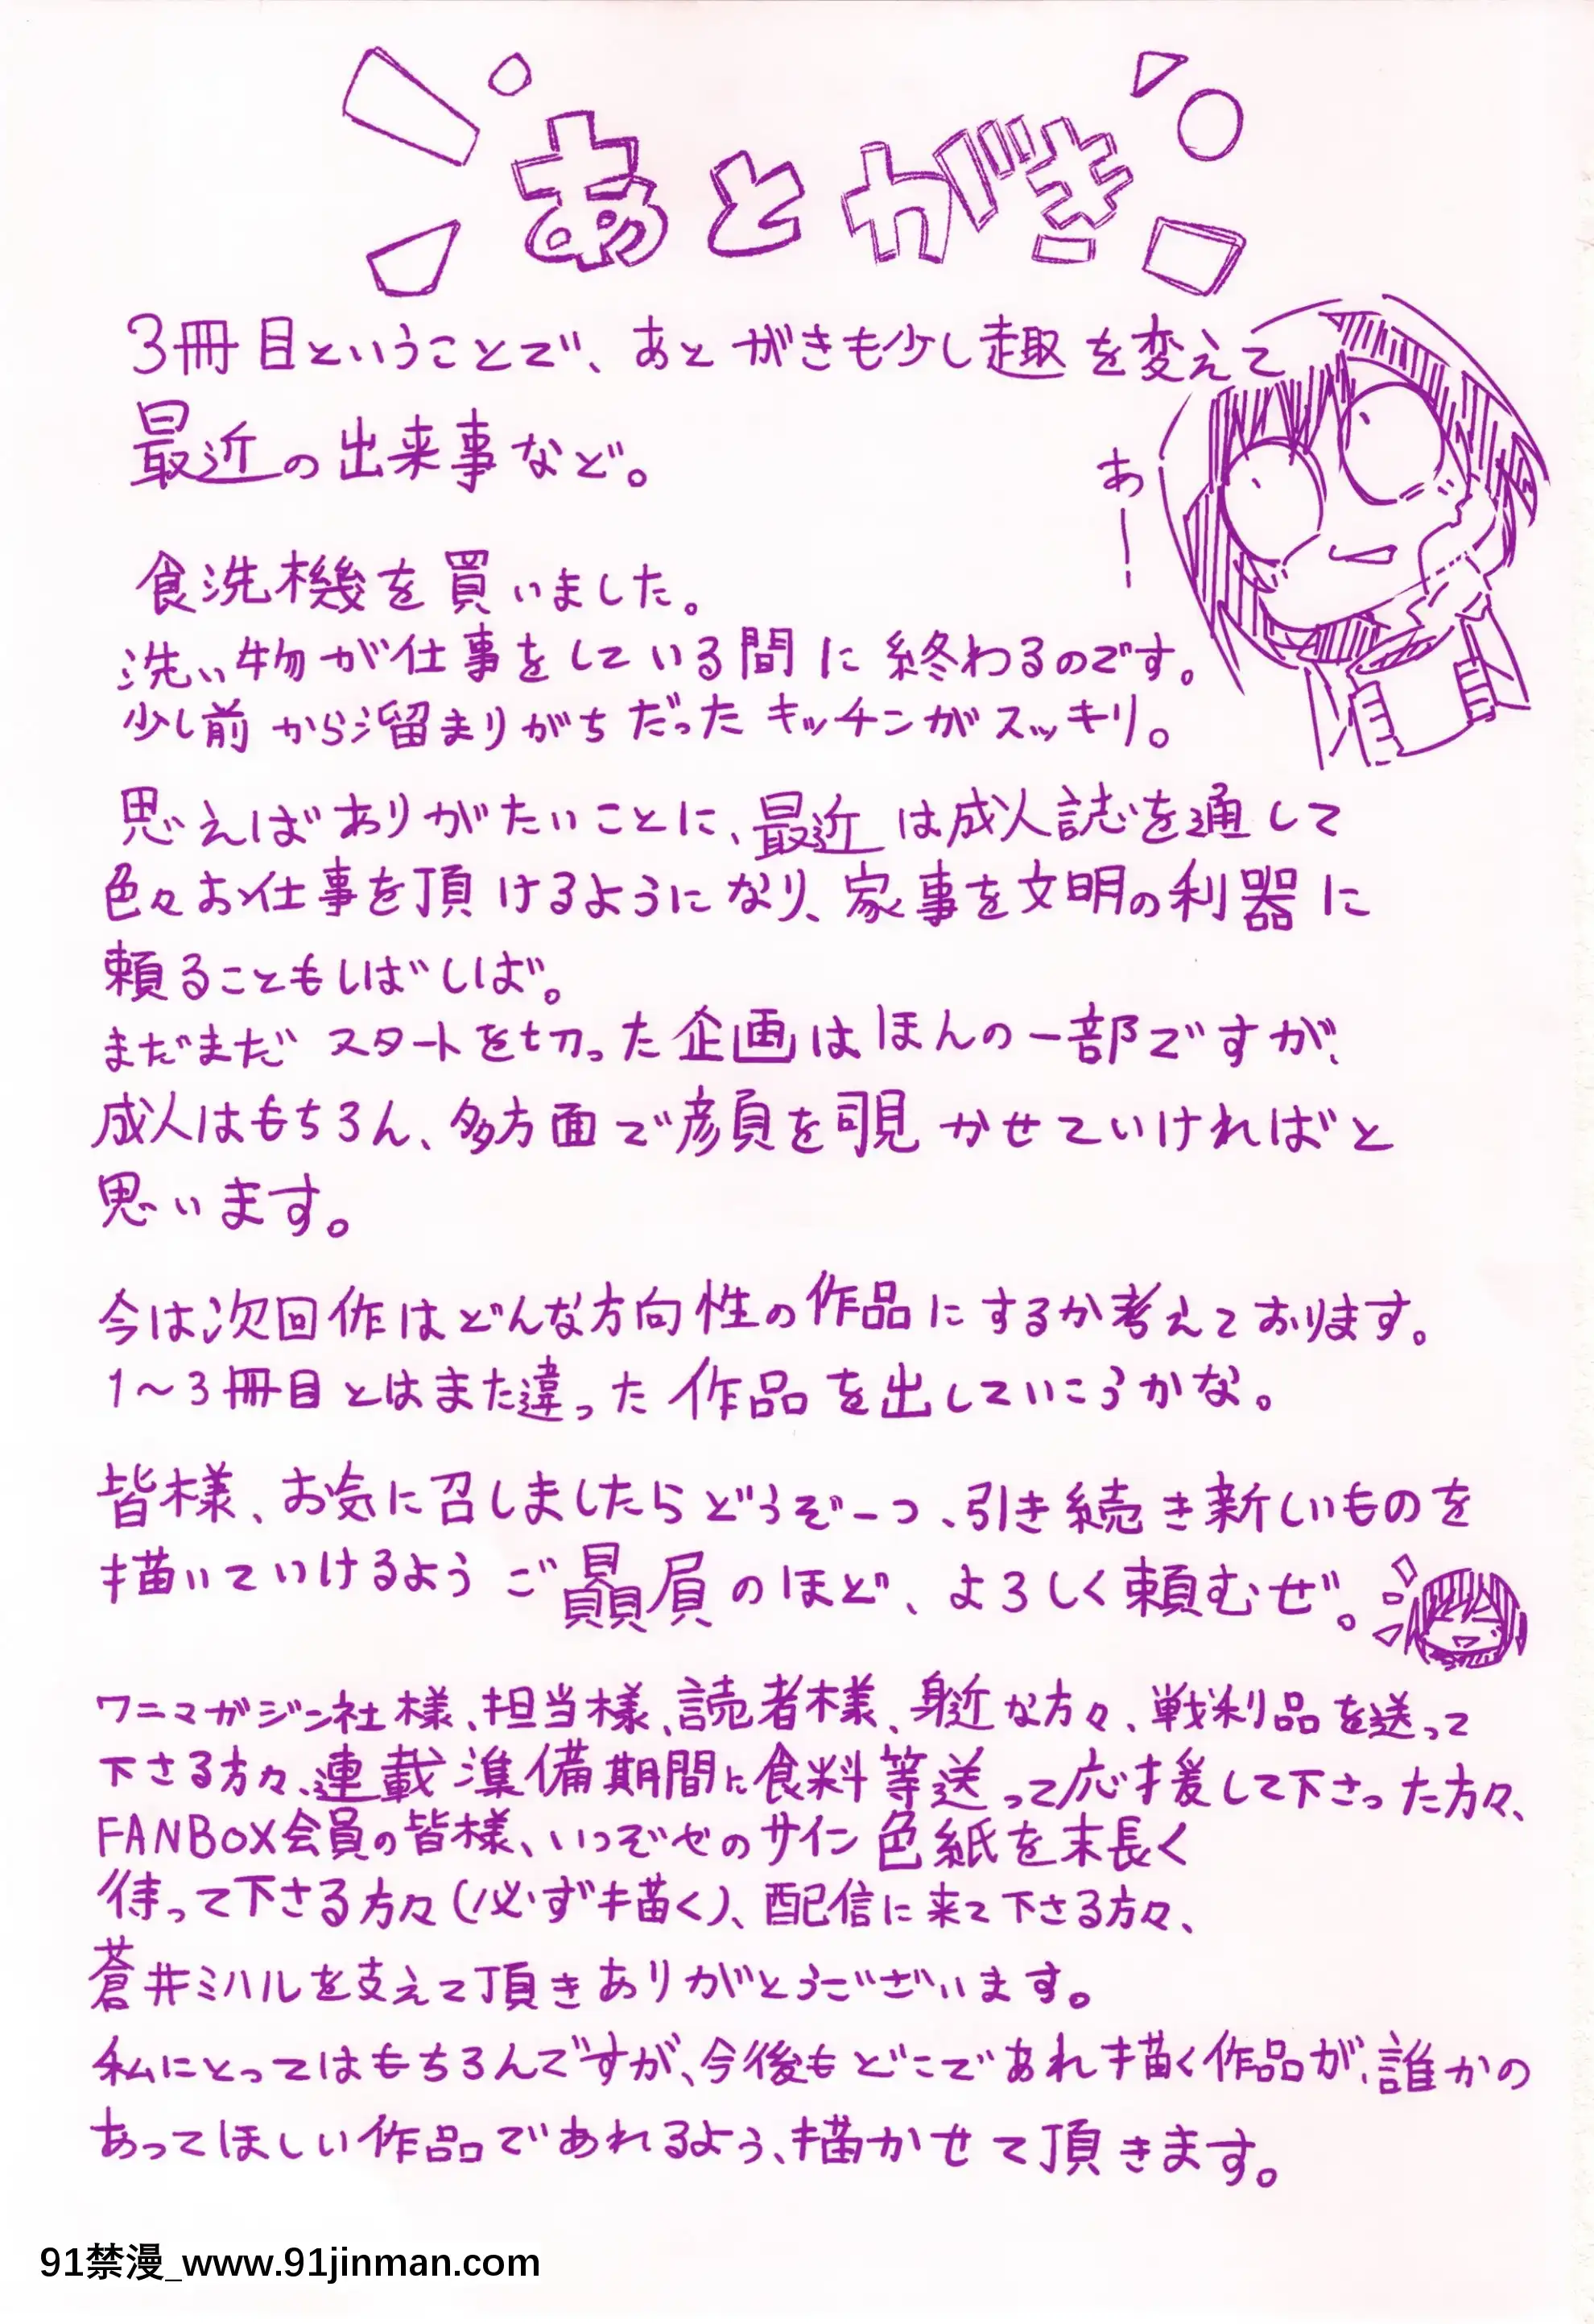 あとがき
3冊目ということで、あとがきも少し趣を変えて
最近の出来事など。
あー
食洗機を買いました。
洗い物が仕事をしている間に終わるのです。
少し前から溜まりがちだったキッチンがスッキリ。
思えばありがたいことに、最近は成人誌を通して
色々お仕事を頂けるようになり、家事を文明の利器に
頼ることもしばしば。
まだまだスタートを切った企画はほんの一部ですが、
成人はもちろん、多方面で彦頁を覗かせていければと
思います。
今は次回作はどんな方向性の作品にするか考えております。
1〜3冊目とはまた違った作品を出していこうかな。
皆様、お気に召しましたらどうぞ一つ、引き続き新しいものを
描いていけるようご贔屓のほど、よろしく頼むぜ。
ワニマガジン社様、担当様、読者様、身近な方々、戦利品を送って
下さる方々、連載準備期間に食料等送って応援して下さった方々、
FANBOX会員の皆様、いつぞやのサイン色紙を末長く
待って下さる方々(必ず描く)、配信に来て下さる方々、
蒼井ミハルを支えて頂きありがとうございます。
私にとってはもちろんですが、今後もどこであれ描く作品が、誰かの
あってほしい作品であれるよう、描かせて頂きます。
91禁漫_www.91jinman.com